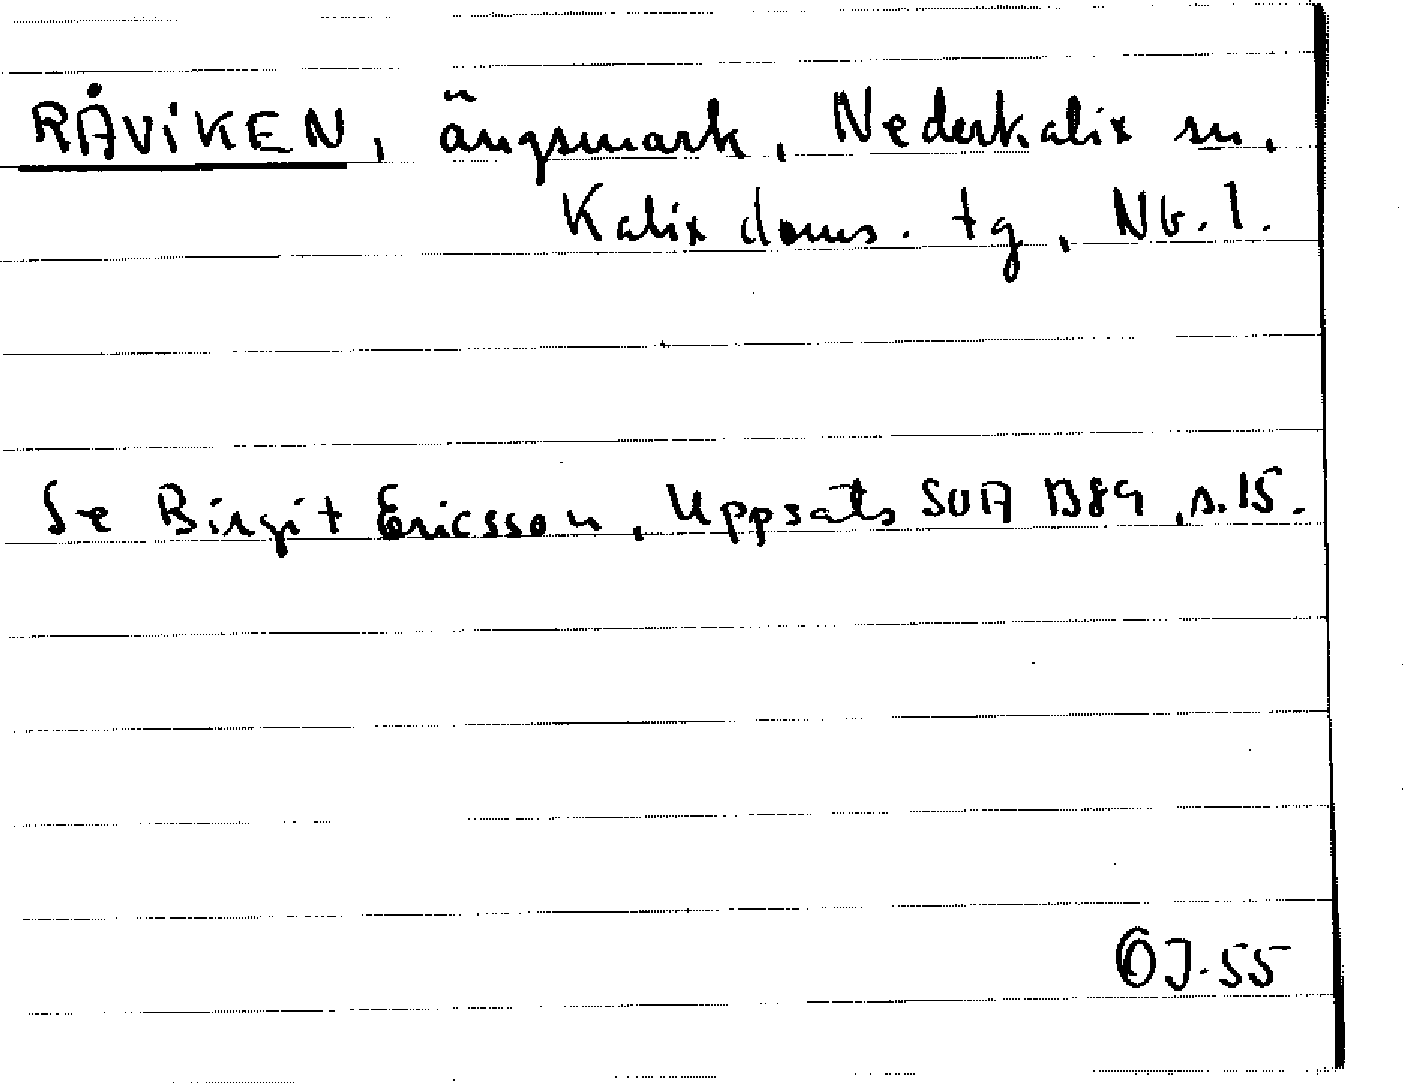 RÅVIKEN, ängsmark, Nederkalix sn,
Kalix doms. tg, Nb. l.
Se Birgit Ericsson, Uppsats SOA B89, s. 15.
OJ-55